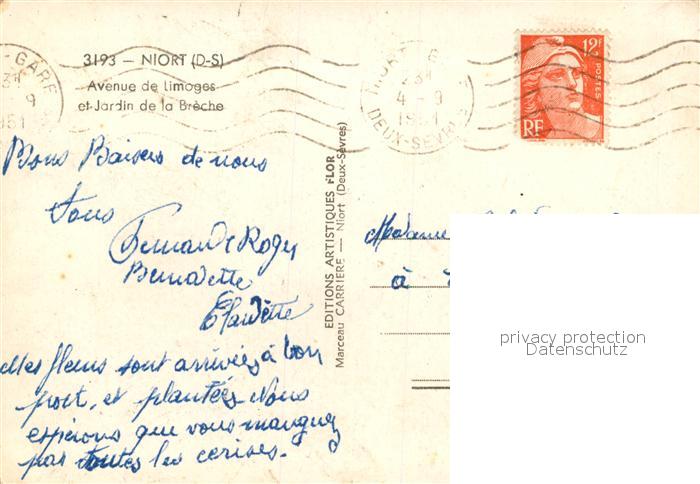 3193 – NIORT (D-S)
Avenue de Limoges
et Jardin de la Brèche
GARE
9
1951
NIORT
4 - 9
DEUX-SEVRES
12F
POSTES
RF
Bons Baisers de nous
tous
Fernande Roger
Bernadette
Claudette
Mes fleurs sont arrivées à bon
port, et plantées. Nous
espérons que vous mangez
pas toutes les cerises.
EDITIONS ARTISTIQUES FLOR
Marceau CARRIÈRE — Niort (Deux-Sèvres)
Madame
à
privacy protection
Datenschutz